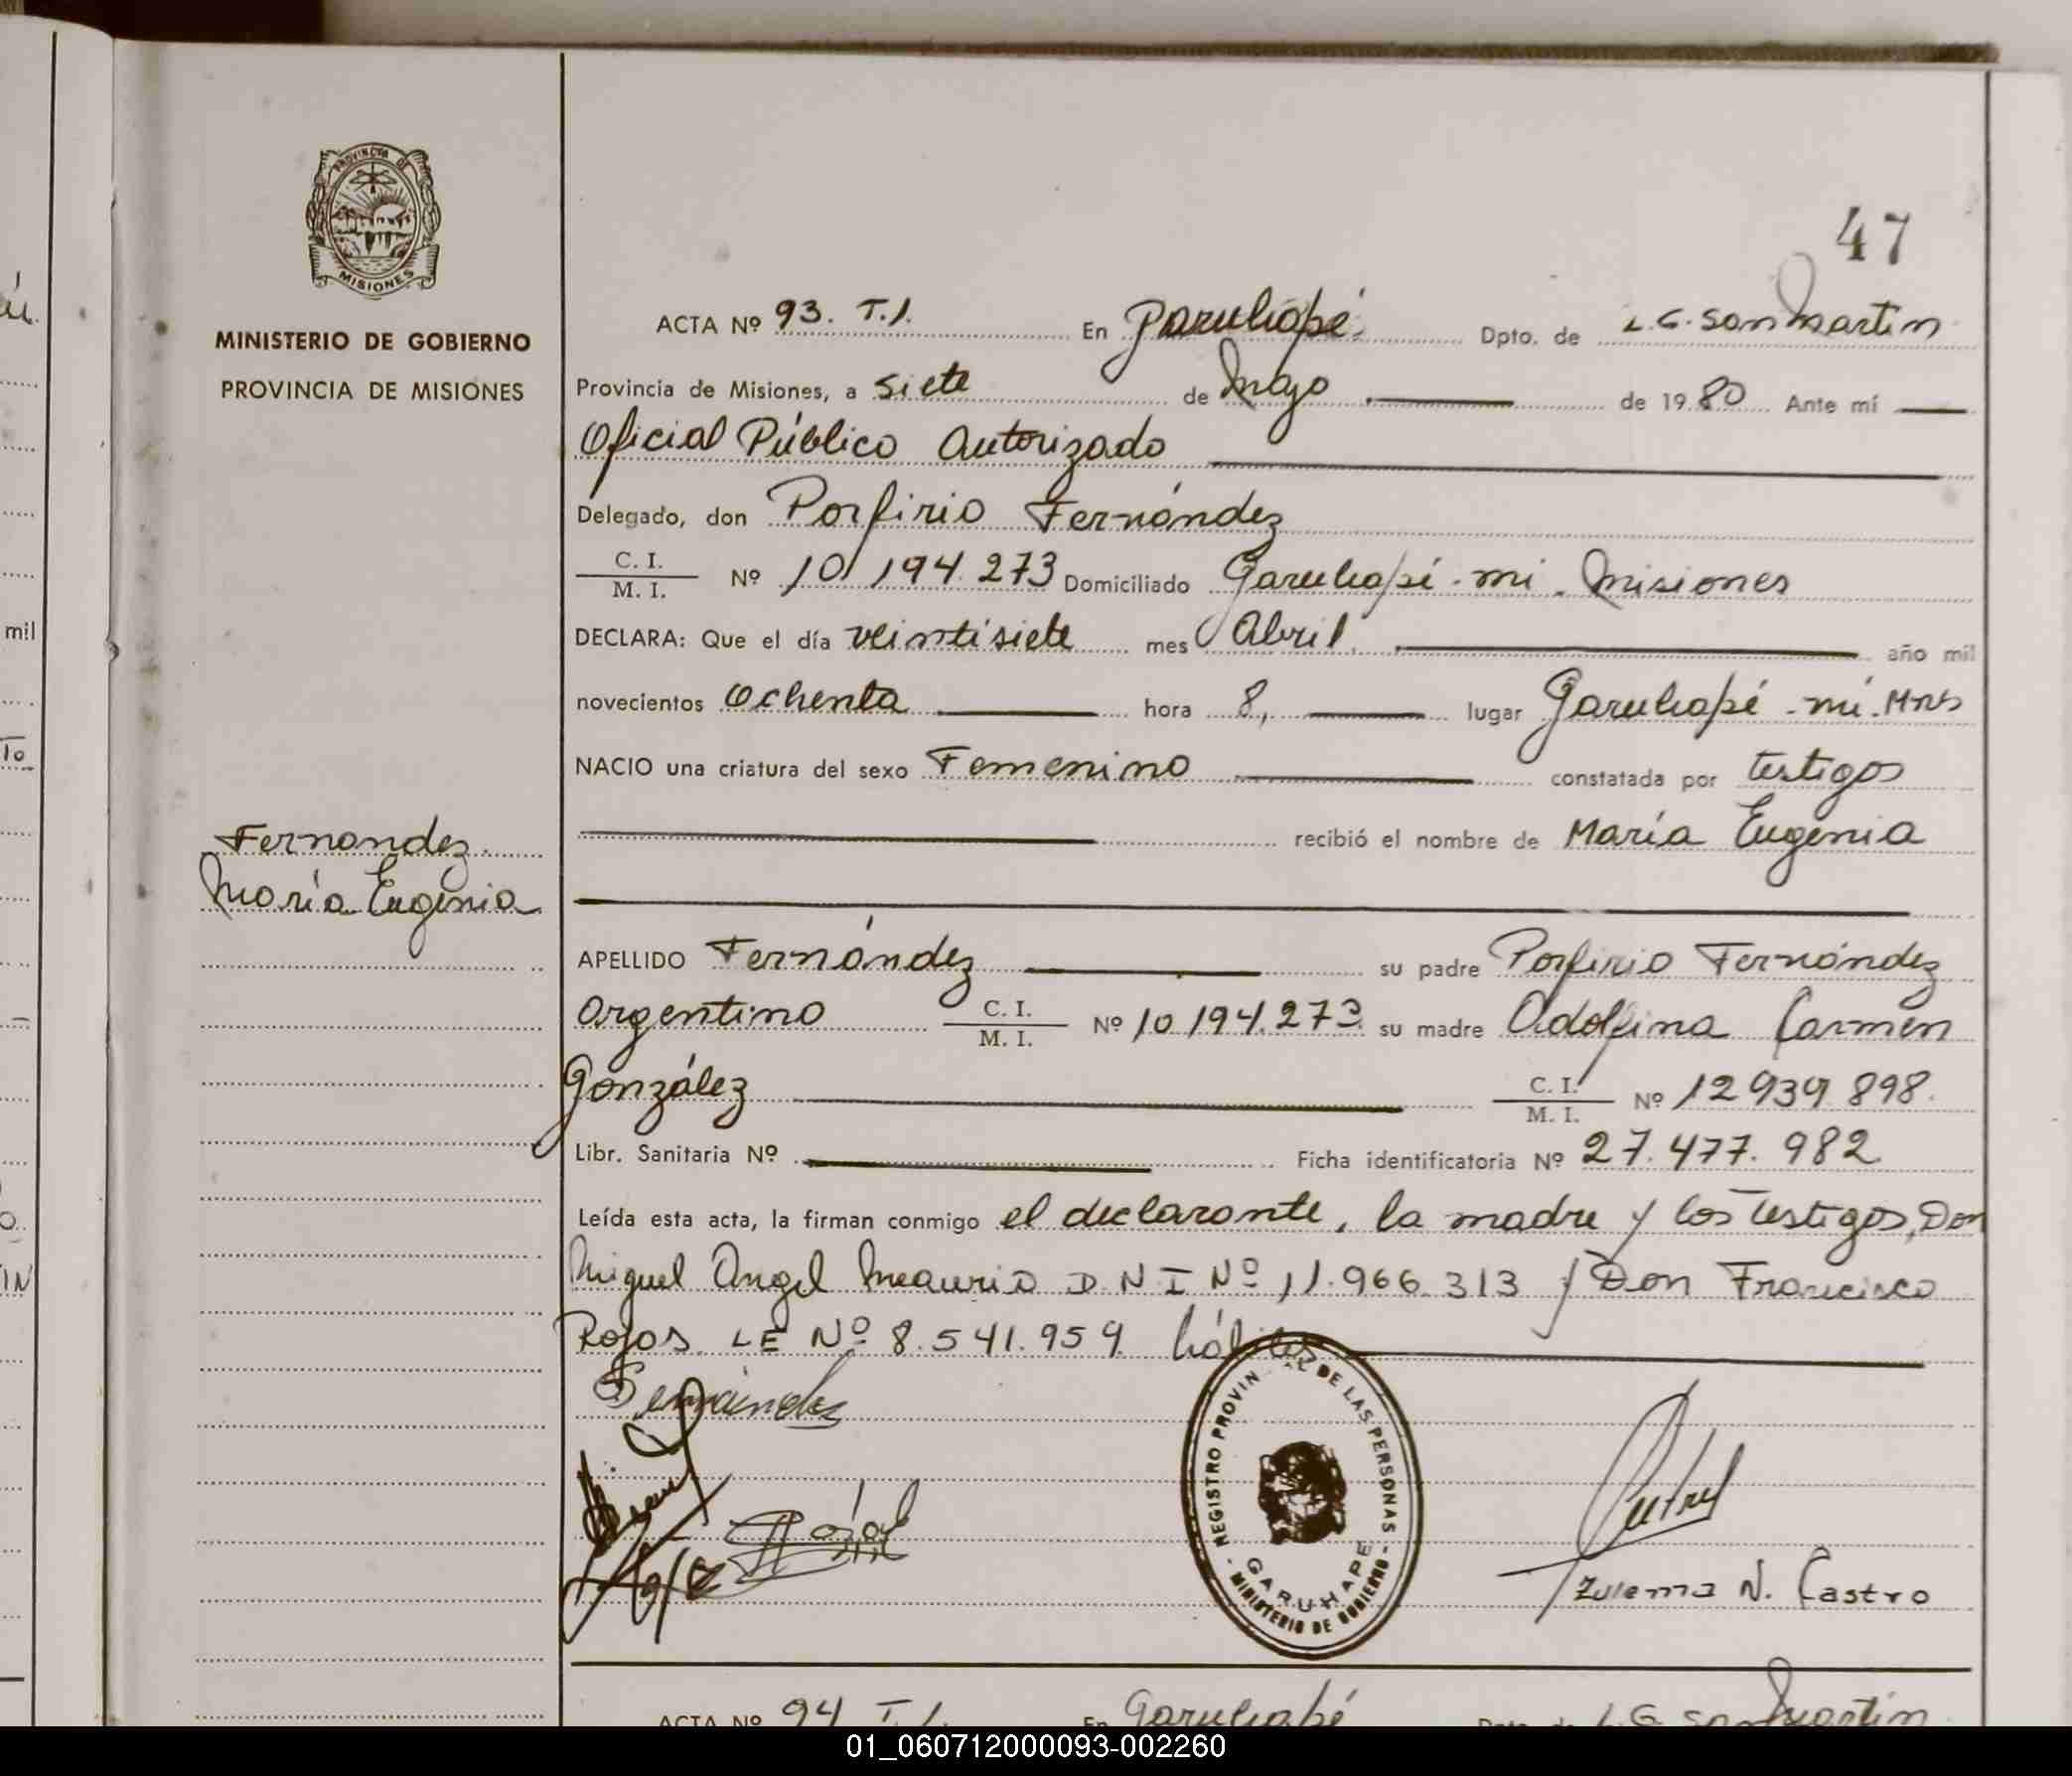 PROVINCIA DE
MISIONES
MINISTERIO DE GOBIERNO
PROVINCIA DE MISIONES
Fernandez
María Eugenia
47
ACTA Nº 93. T.I. En Garuhapé. Dpto. de L.G. San Martin
Provincia de Misiones, a siete de Mayo de 1980 Ante mí
Oficial Público Autorizado
Delegado, don Porfirio Fernández
C. I.
M. I. Nº 10 194.273 Domiciliado Garuhapé-mi. Misiones
DECLARA: Que el día veintisiete mes Abril año mil
novecientos Ochenta hora 8, lugar Garuhapé-mi. Mnes
NACIO una criatura del sexo Femenino constatada por testigos
recibió el nombre de María Eugenia
APELLIDO Fernández su padre Porfirio Fernández
Argentino C. I.
M. I. Nº 10 194.273 su madre Adolfina Carmen
González C. I.
M. I. Nº 12 939 898.
Libr. Sanitaria Nº Ficha identificatoria Nº 27.477.982
Leída esta acta, la firman conmigo el declarante, la madre y los testigos, Don
Miguel Angel Meaurio D.N.I Nº 11.966.313 y Don Francisco
Rojas. LE Nº 8.541.959. hábiles
Fernández
REGISTRO PROVIN DE LAS PERSONAS
GARUHAPE
- MINISTERIO DE GOBIERNO -
Zulema N. Castro
ACTA Nº 94 T.I. En Garuhapé Dpto. de L.G. San Martin
mil
To
IN
01_060712000093-002260